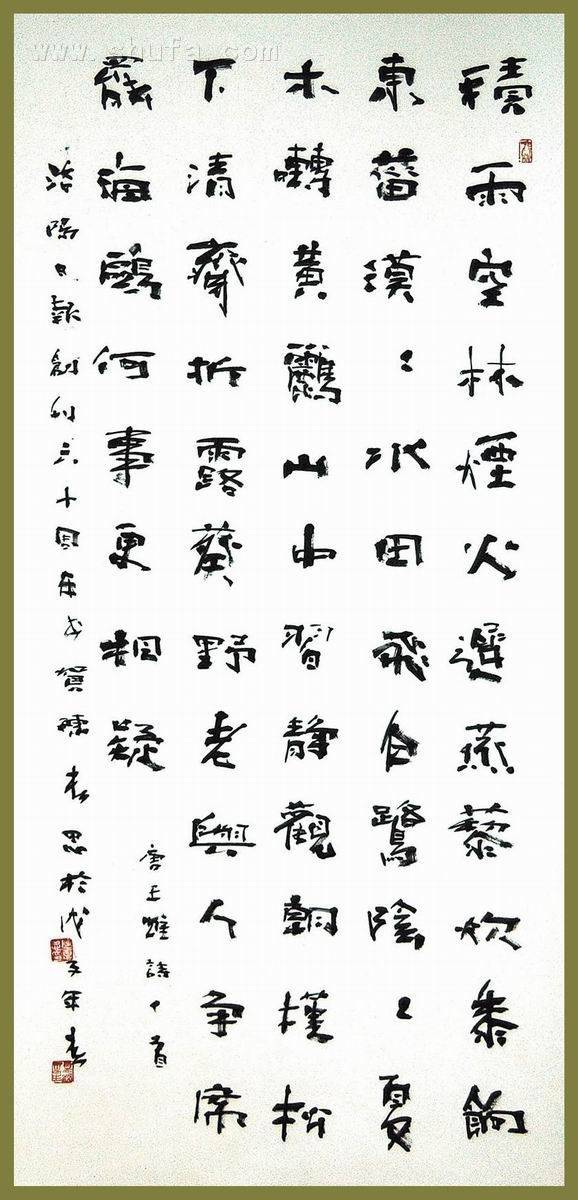 www.shufa.com
積雨空林煙火遲蒸藜炊黍餉
東菑漠〻水田飛白鷺陰〻夏
木囀黃鸝山中習靜觀朝槿松
下清齋折露葵野老與人爭席
罷海鷗何事更相疑
唐王維詩一首
洛陽日報創刊六十周年志賀 思於戊子年春